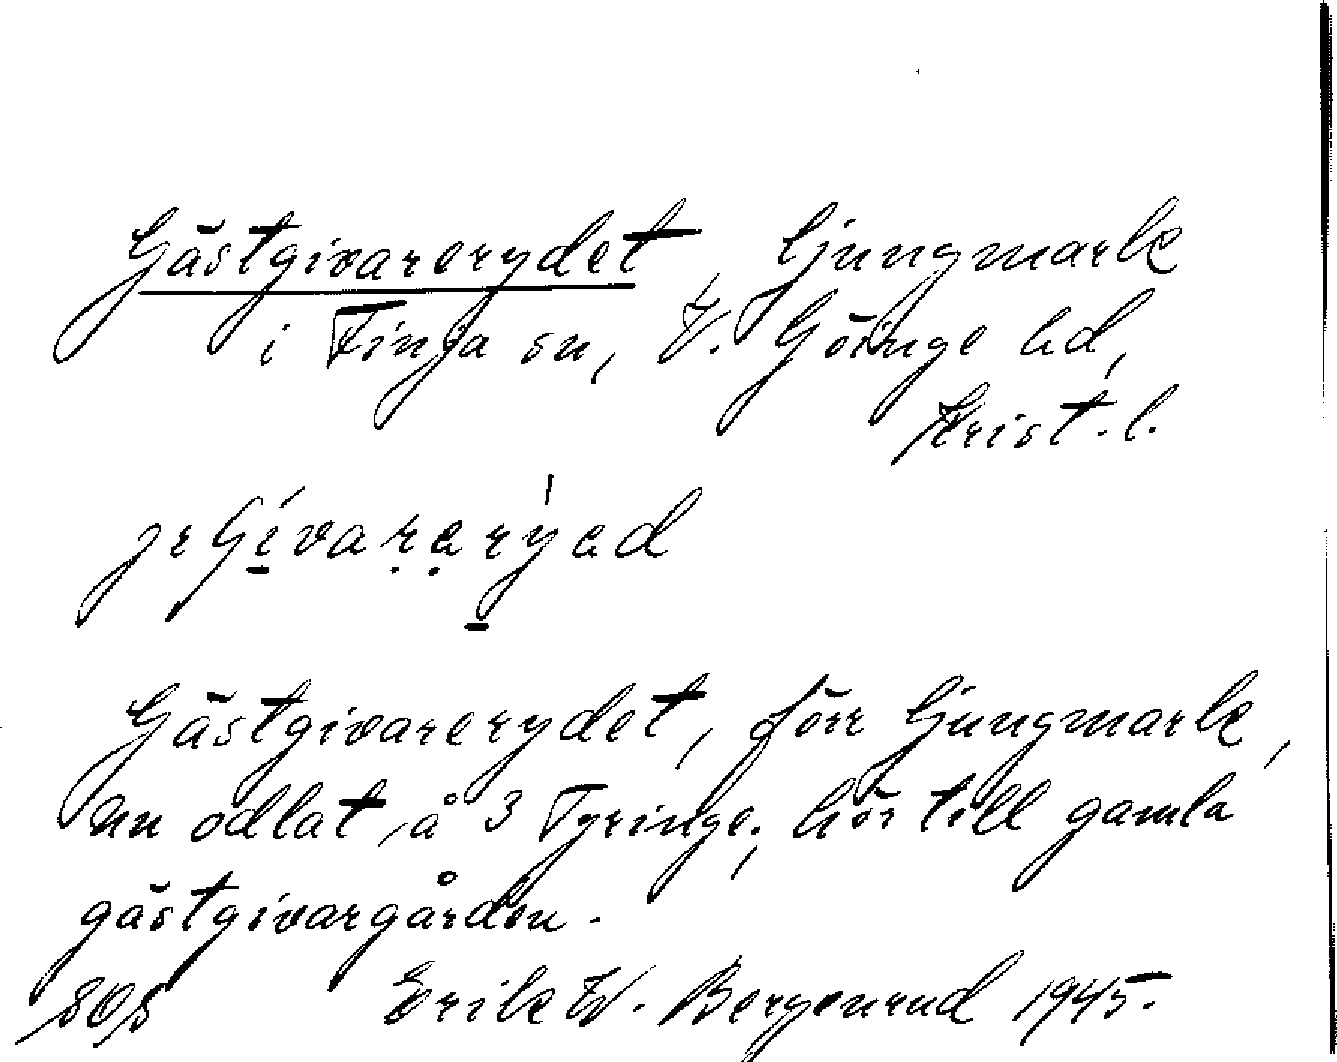 Gästgivarerydet, ljungmark
i Finja sn, V. Göinge hd,
Krist. l.
Gästgivarerydet, förr ljungmark,
nu odlat, å 3 Tyringe; hör till gamla
gästgivargården.
Erik W. Bergenrud 1945.